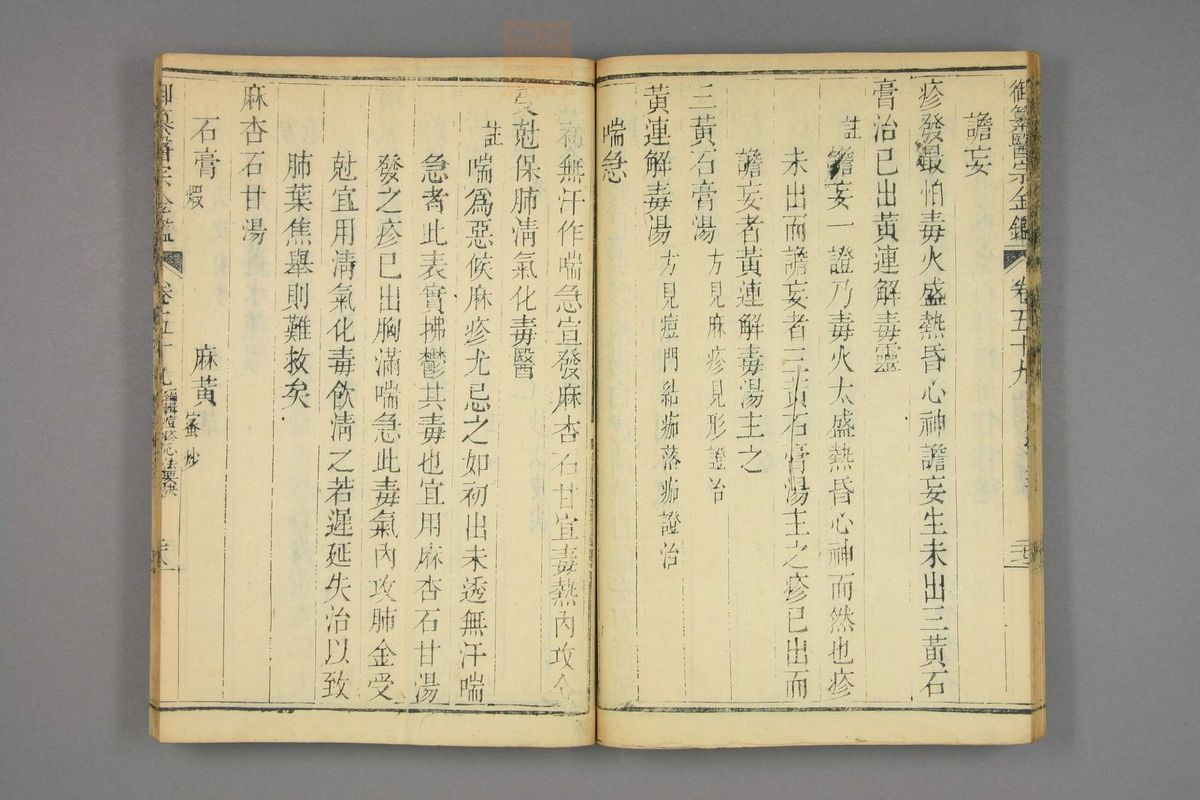 御纂醫宗金鑑 卷五十九
譫妄
疹發最怕毒火盛熱昏心神譫妄生未出三黃石
膏治已出黃連解毒靈
註 譫妄一證乃毒火太盛熱昏心神而然也疹
未出而譫妄者三黃石膏湯主之疹已出而
譫妄者黃連解毒湯主之
三黃石膏湯 方見麻疹見形證治
黃連解毒湯 方見痘門結痂落痂證治
喘急
初無汗作喘急宣發麻杏石甘宜毒熱內攻金
受尅保肺淸氣化毒醫
註 喘爲惡候麻疹尤忌之如初出未透無汗喘
急者此表實拂鬱其毒也宜用麻杏石甘湯
發之疹已出胸滿喘急此毒氣內攻肺金受
尅宜用淸氣化毒飮淸之若遲延失治以致
肺葉焦舉則難救矣
麻杏石甘湯
石膏 煅 麻黃 蜜炒
御纂醫宗金鑑 卷五十九 編輯痘疹心法要訣